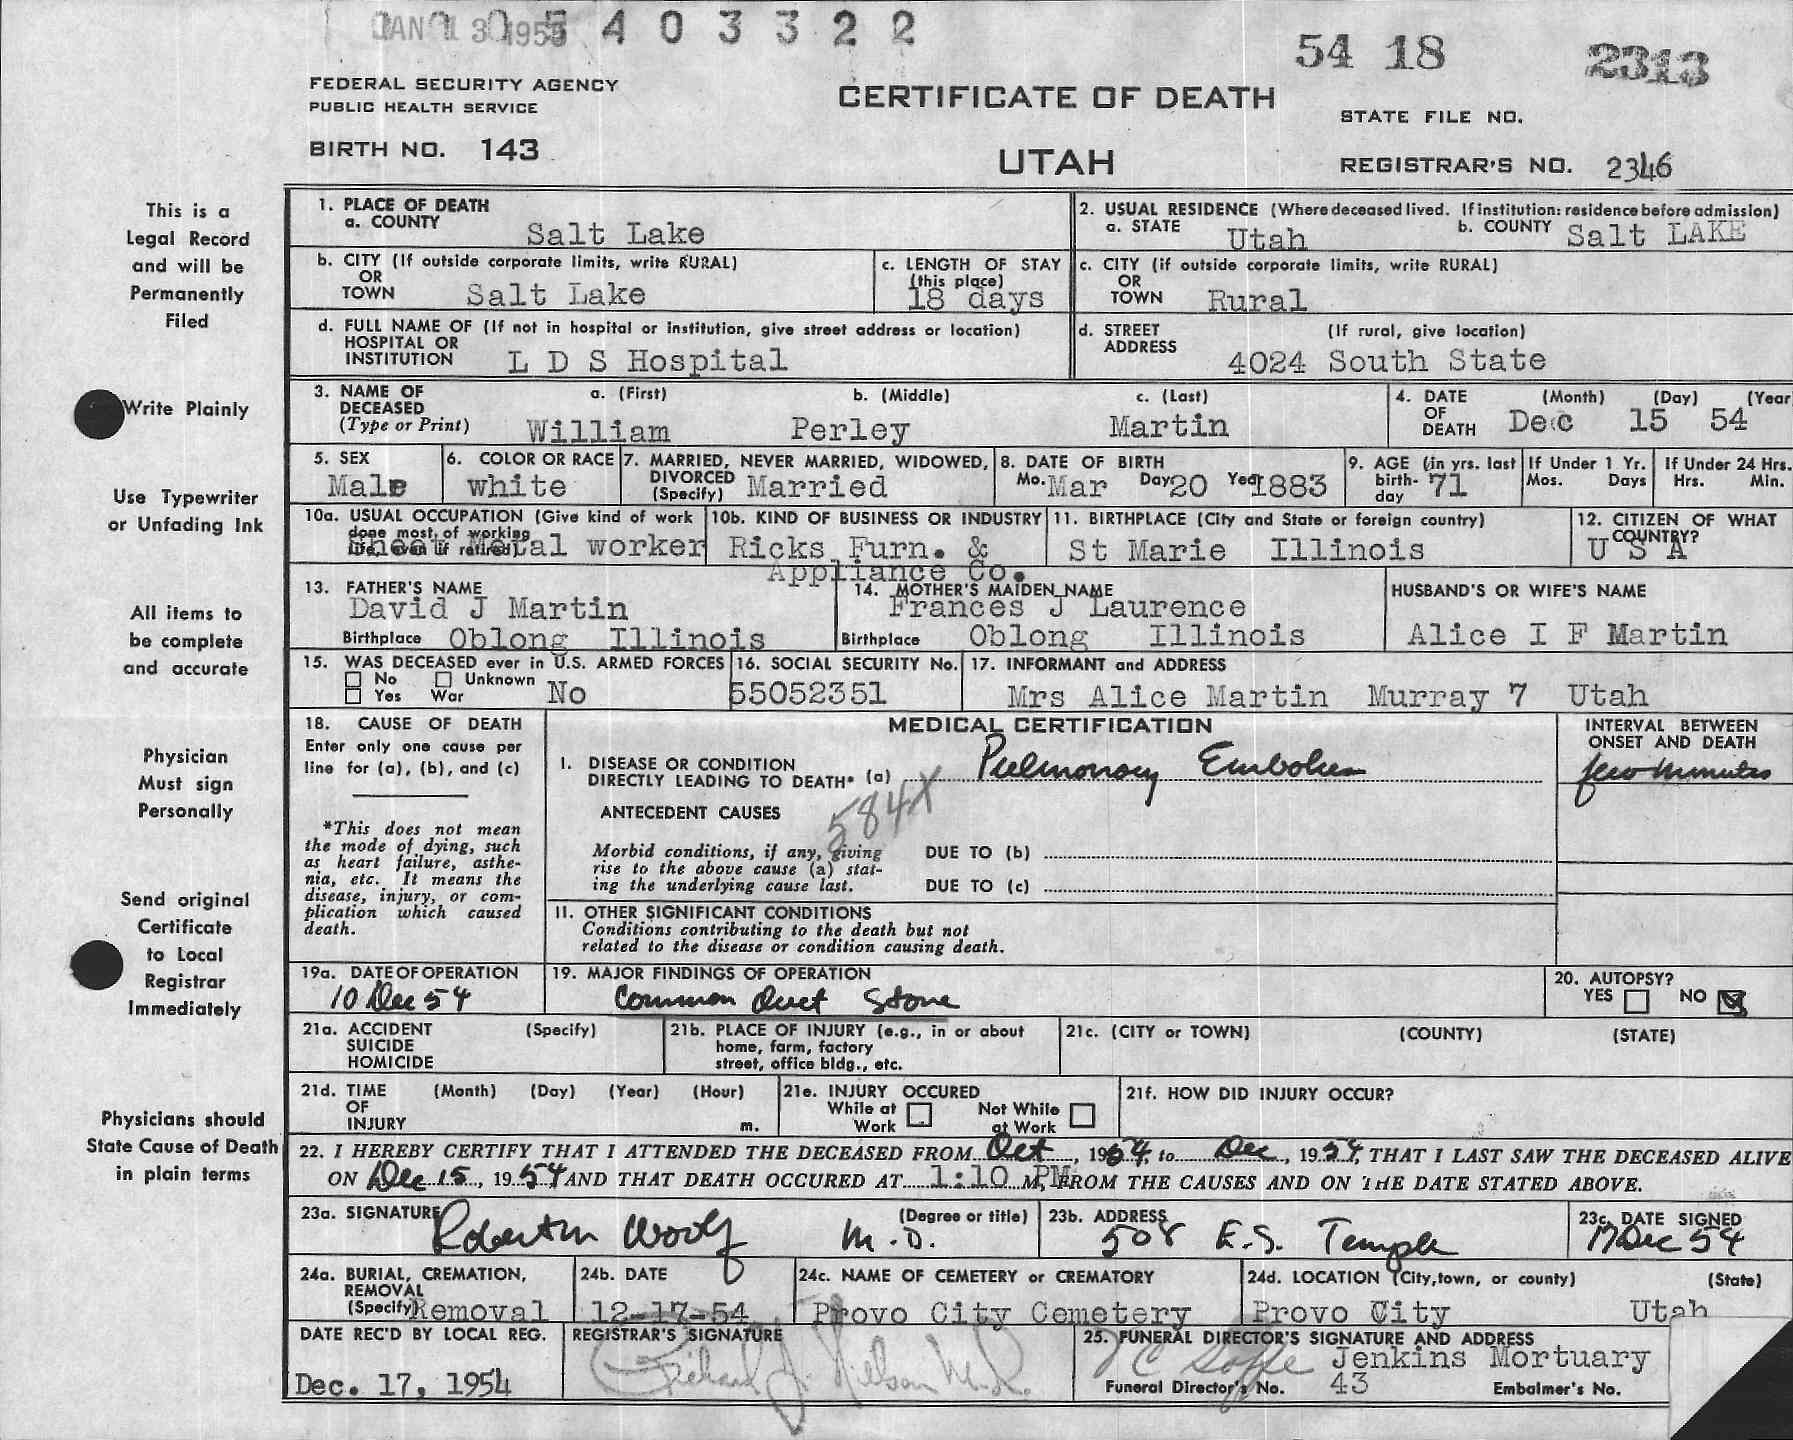 JAN 13 1955 4 0 3 3 2 2
54 18 2313
FEDERAL SECURITY AGENCY
PUBLIC HEALTH SERVICE
CERTIFICATE OF DEATH
STATE FILE NO.
BIRTH NO. 143
UTAH
REGISTRAR'S NO. 2346
This is a
Legal Record
and will be
Permanently
Filed
Write Plainly
Use Typewriter
or Unfading Ink
All items to
be complete
and accurate
Physician
Must sign
Personally
Send original
Certificate
to Local
Registrar
Immediately
Physicians should
State Cause of Death
in plain terms
1. PLACE OF DEATH
a. COUNTY Salt Lake
2. USUAL RESIDENCE (Where deceased lived. If institution: residence before admission)
a. STATE Utah b. COUNTY Salt LAKE
b. CITY (If outside corporate limits, write RURAL)
OR
TOWN Salt Lake
c. LENGTH OF STAY
(this place)
18 days
c. CITY (if outside corporate limits, write RURAL)
OR
TOWN Rural
d. FULL NAME OF (If not in hospital or institution, give street address or location)
HOSPITAL OR
INSTITUTION L D S Hospital
d. STREET (If rural, give location)
ADDRESS 4024 South State
3. NAME OF a. (First) b. (Middle) c. (Last)
DECEASED
(Type or Print) William Perley Martin
4. DATE (Month) (Day) (Year
OF
DEATH Dec 15 54
5. SEX
Male
6. COLOR OR RACE
white
7. MARRIED, NEVER MARRIED, WIDOWED,
DIVORCED
(Specify) Married
8. DATE OF BIRTH
Mo. Mar Day 20 Year 1883
9. AGE (in yrs. last
birth-
day 71
If Under 1 Yr.
Mos. Days
If Under 24 Hrs.
Hrs. Min.
10a. USUAL OCCUPATION (Give kind of work
done most of working
life, even if retired)
Sheet Metal worker
10b. KIND OF BUSINESS OR INDUSTRY
Ricks Furn. &
Appliance Co.
11. BIRTHPLACE (City and State or foreign country)
St Marie Illinois
12. CITIZEN OF WHAT
COUNTRY?
U S A
13. FATHER'S NAME
David J Martin
Birthplace Oblong Illinois
14. MOTHER'S MAIDEN NAME
Frances J Laurence
Birthplace Oblong Illinois
HUSBAND'S OR WIFE'S NAME
Alice I F Martin
15. WAS DECEASED ever in U.S. ARMED FORCES
No Unknown
Yes War No
16. SOCIAL SECURITY No.
55052351
17. INFORMANT and ADDRESS
Mrs Alice Martin Murray 7 Utah
18. CAUSE OF DEATH
Enter only one cause per
line for (a), (b), and (c)
*This does not mean
the mode of dying, such
as heart failure, asthe-
nia, etc. It means the
disease, injury, or com-
plication which caused
death.
MEDICAL CERTIFICATION
INTERVAL BETWEEN
ONSET AND DEATH
I. DISEASE OR CONDITION
DIRECTLY LEADING TO DEATH* (a) Pulmonary Embolus
few minutes
584X
ANTECEDENT CAUSES
Morbid conditions, if any, giving
rise to the above cause (a) stat-
ing the underlying cause last.
DUE TO (b)
DUE TO (c)
II. OTHER SIGNIFICANT CONDITIONS
Conditions contributing to the death but not
related to the disease or condition causing death.
19a. DATE OF OPERATION
10 Dec 54
19. MAJOR FINDINGS OF OPERATION
Common Duct Stone
20. AUTOPSY?
YES NO
21a. ACCIDENT (Specify)
SUICIDE
HOMICIDE
21b. PLACE OF INJURY (e.g., in or about
home, farm, factory
street, office bldg., etc.
21c. (CITY or TOWN) (COUNTY) (STATE)
21d. TIME (Month) (Day) (Year) (Hour)
OF
INJURY m.
21e. INJURY OCCURED
While at Not While
Work at Work
21f. HOW DID INJURY OCCUR?
22. I HEREBY CERTIFY THAT I ATTENDED THE DECEASED FROM Oct, 1954, to Dec, 1954, THAT I LAST SAW THE DECEASED ALIVE
ON Dec 15, 1954 AND THAT DEATH OCCURED AT 1:10 PM, FROM THE CAUSES AND ON THE DATE STATED ABOVE.
23a. SIGNATURE (Degree or title)
Woolf M.D.
23b. ADDRESS
508 E. S. Temple
23c. DATE SIGNED
17 Dec 54
24a. BURIAL, CREMATION,
REMOVAL
(Specify) Removal
24b. DATE
12-17-54
24c. NAME OF CEMETERY or CREMATORY
Provo City Cemetery
24d. LOCATION (City, town, or county) (State)
Provo City Utah
DATE REC'D BY LOCAL REG.
Dec. 17, 1954
REGISTRAR'S SIGNATURE
Richard J. Nelson M.D.
25. FUNERAL DIRECTOR'S SIGNATURE AND ADDRESS
Jenkins Mortuary
Funeral Director's No. 43 Embalmer's No.